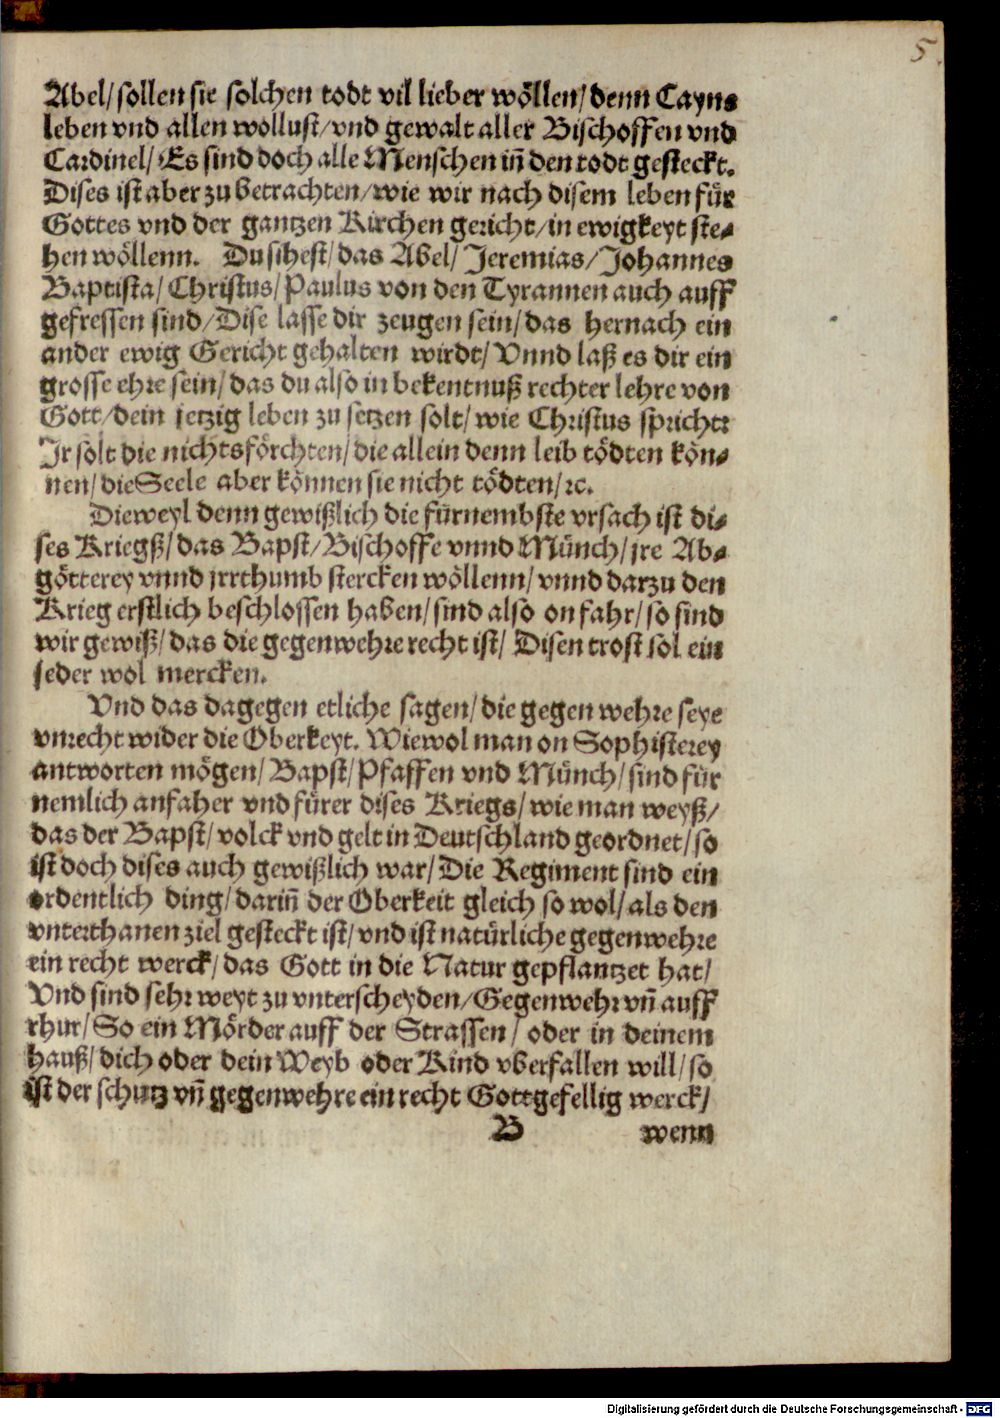 5
Abel/ sollen sie solchen todt vil lieber wöllen/ denn Cayns
leben vnd allen wollust/ vnd gewalt aller Bischoffen vnd
Cardinel/ Es sind doch alle Menschen iñ den todt gesteckt.
Dises ist aber zu betrachten/ wie wir nach disem leben für
Gottes vnd der gantzen Kirchen gericht/ in ewigkeyt ste⸗
hen wöllenn. Du sihest/ das Abel/ Jeremias/ Johannes
Baptista/ Christus/ Paulus von den Tyrannen auch auff
gefressen sind/ Dise lasse dir zeugen sein/ das hernach ein
ander ewig Gericht gehalten wirdt/ Vnnd laß es dir ein
grosse ehre sein/ das du also in bekentnuß rechter lehre von
Gott/ dein jetzig leben zu setzen solt/ wie Christus spricht:
Jr solt die nichts förchten/ die allein denn leib tödten kön⸗
nen/ die Seele aber können sie nicht tödten/ ꝛc.
Dieweyl denn gewißlich die fürnembste vrsach ist di⸗
ses Kriegß/ das Bapst/ Bischoffe vnnd Münch/ jre Ab⸗
götterey vnnd jrrthumb stercken wöllenn/ vnnd darzu den
Krieg erstlich beschlossen haben/ sind also on fahr/ so sind
wir gewiß/ das die gegenwehre recht ist/ Disen trost sol ein
jeder wol mercken.
Vnd das dagegen etliche sagen/ die gegenwehre seye
vnrecht wider die Oberkeyt. Wiewol man on Sophisterey
antworten mögen/ Bapst/ Pfaffen vnd Münch/ sind für
nemlich anfaher vnd fürer dises Kriegs/ wie man weyß/
das der Bapst/ volck vnd gelt in Deutschland geordnet/ so
ist doch dises auch gewißlich war/ Die Regiment sind ein
ordentlich ding/ dariñ der Oberkeit gleich so wol/ als den
vnterthanen ziel gesteckt ist/ vnd ist natürliche gegenwehre
ein recht werck/ das Gott in die Natur gepflantzet hat/
Vnd sind sehr weyt zu vnterscheyden/ Gegenwehr vñ auff
rhur/ So ein Mörder auff der Strassen/ oder in deinem
hauß/ dich oder dein Weyb oder Kind vberfallen will/ so
ist der schutz vñ gegenwehre ein recht Gottgefellig werck/
B wenn
Digitalisierung gefördert durch die Deutsche Forschungsgemeinschaft - DFG